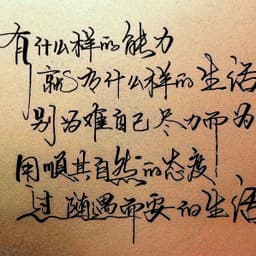 有什么样的能力
就有什么样的生活
别为难自己尽力而为
用順其自然的态度
过随遇而安的生活